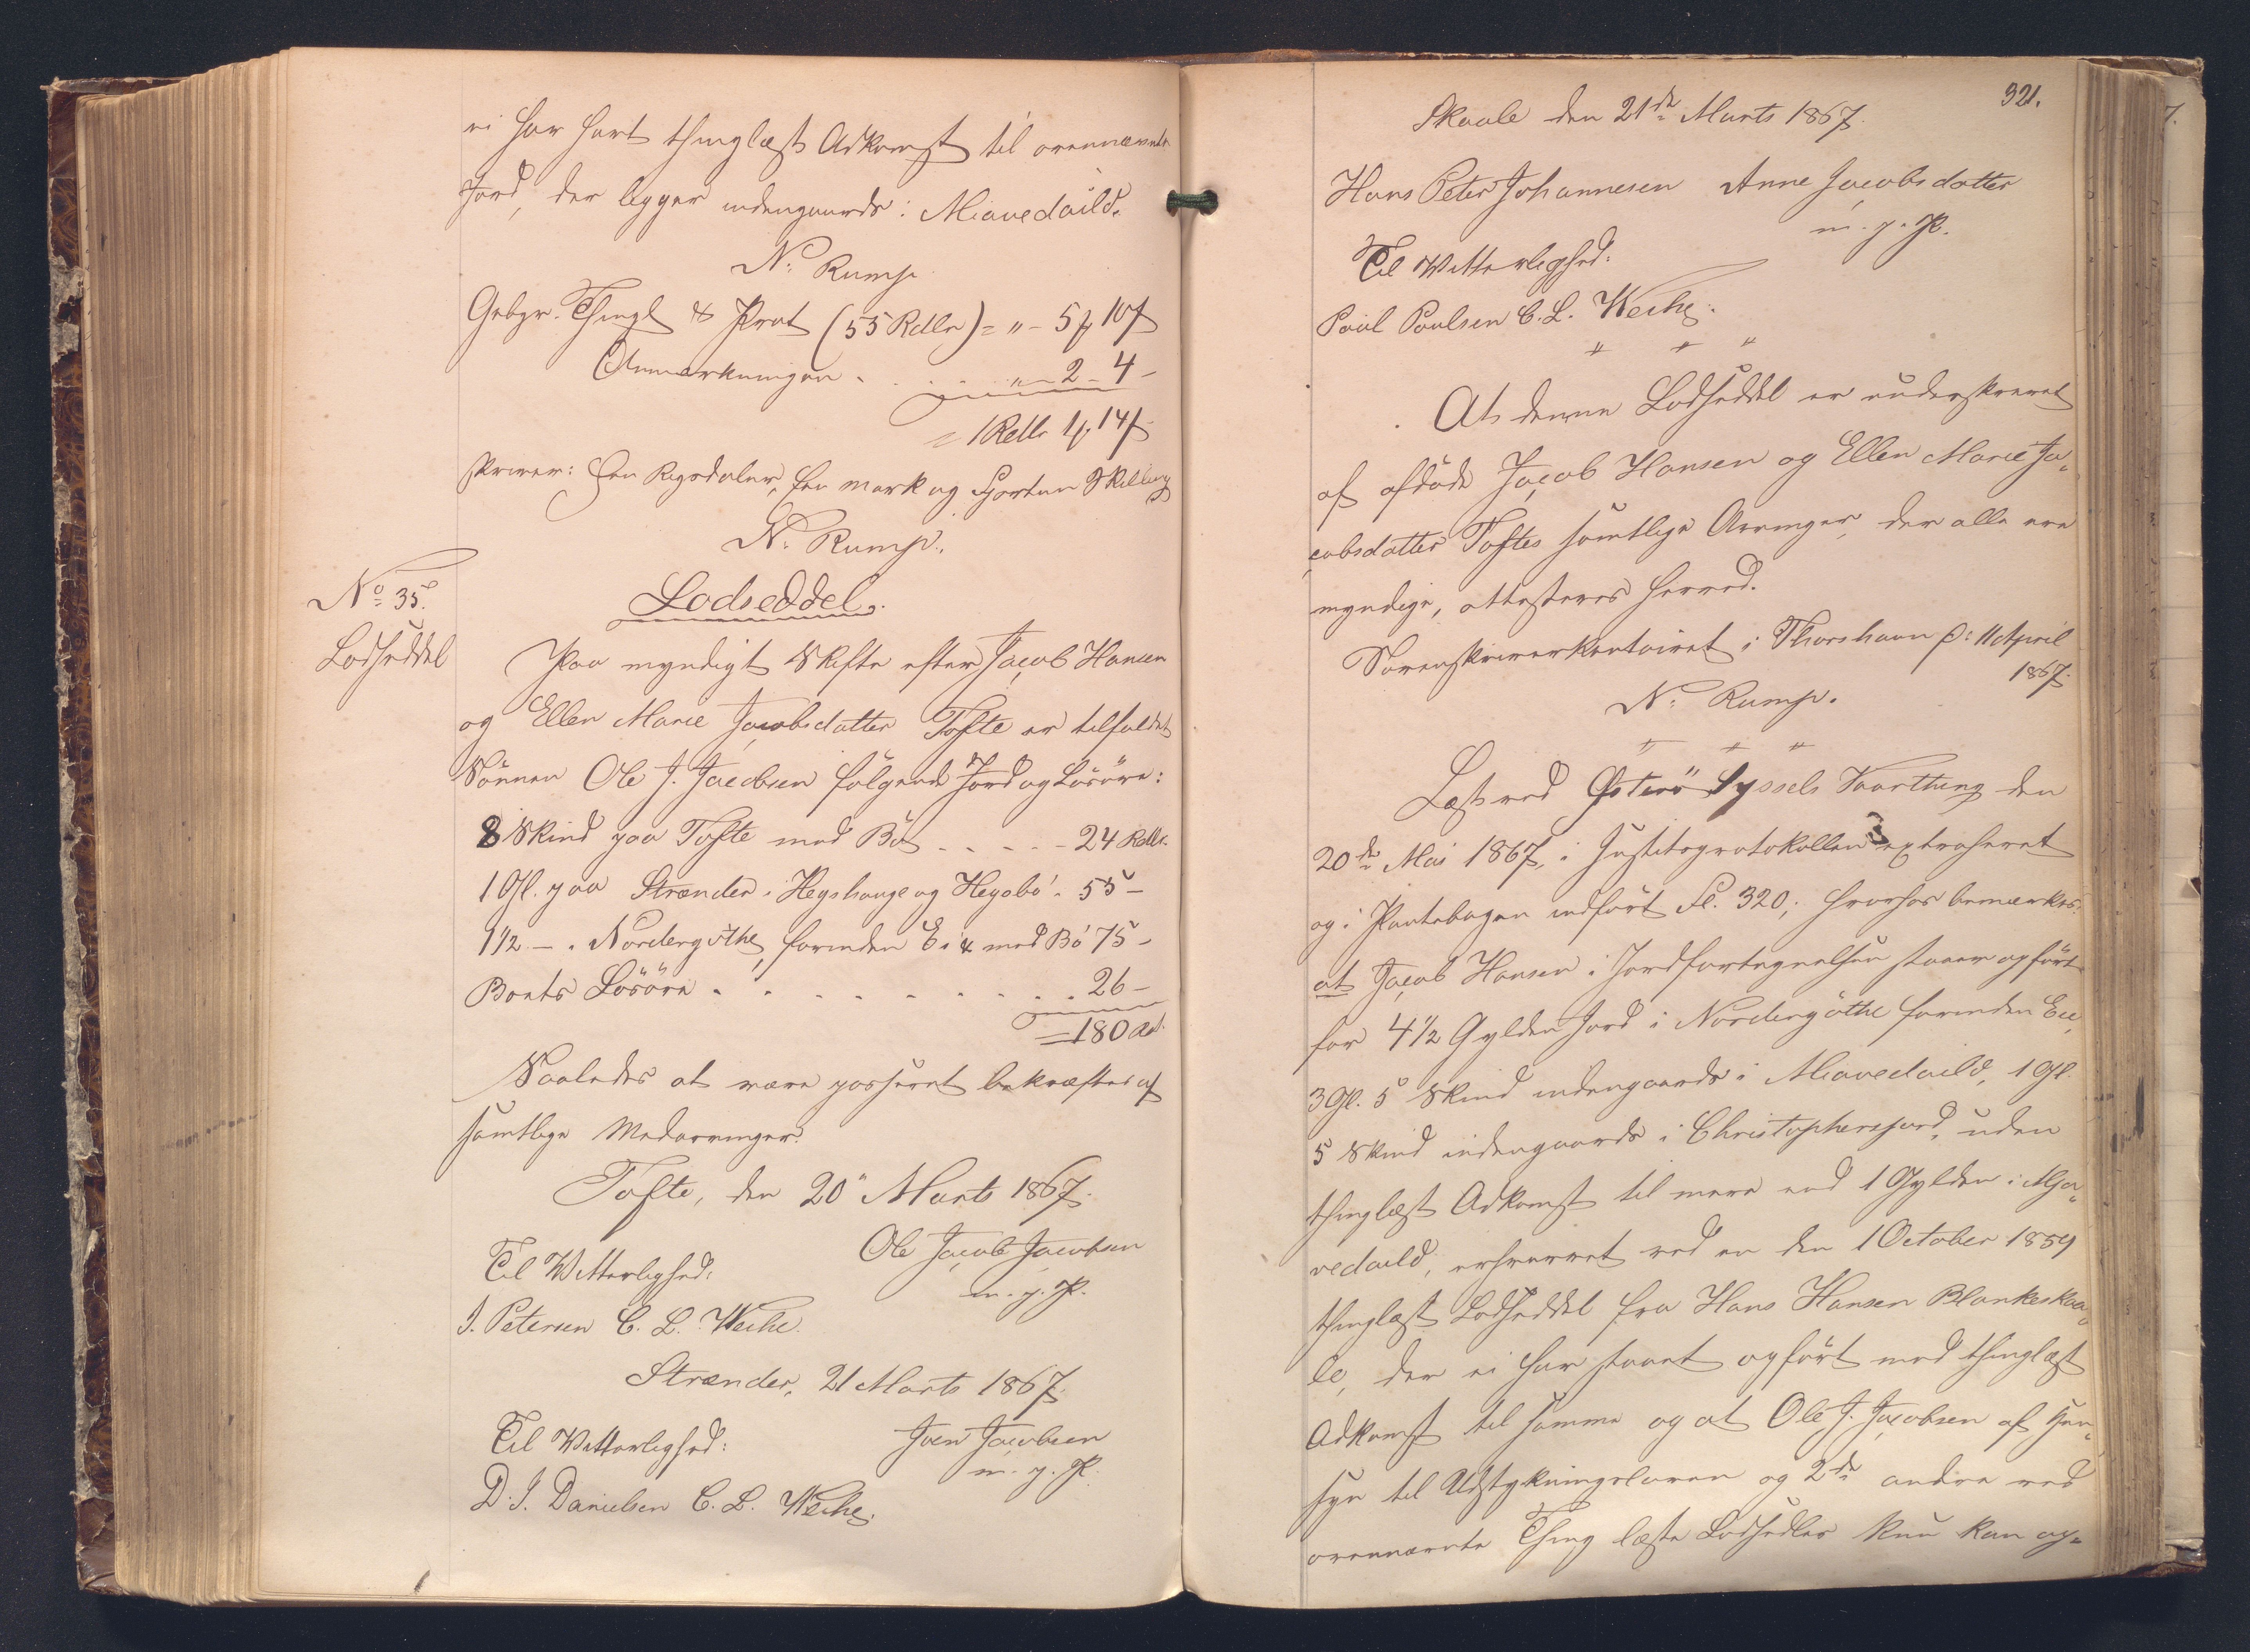 ei har havt thinglæst Adkomst til ovennævnte
Jord, der ligger indengaards i Miavedaild.
N. Rump
Gebyr. Thingl & Prot (55 Rdlr) = " - 5 ₰ 10 ß
Anmærkningen . . . . " - 2 - 4 -
= 1 Rdlr 1 ₰ 14 ß
skriver: Een Rigsdaler, Een Mark og Fjorten Skilling
N. Rump.
No 35.
Lodseddel
Lodseddel.
Paa myndigt Skifte efter Jacob Hansen
og Ellen Marie Jacobsdatter Tofte er tilfaldet
Sönnen Ole J. Jacobsen fölgende Jord og Lösöre:
8 Skind paa Tofte med Bö . . . . 24 Rdlr.
1 Gl. paa Strænder i Heyshauge og Heyobö . 55 -
1 1/2 - i Nordergöthe, forinden Ei & med Bö 75 -
Boets Lösöre . . . . . . . . . . 26 -
= 180 Rd.
Saaledes at være passeret bekræftes af
samtlige Medarvinger.
Tofte, den 20" Marts 1867.
Ole Jacob Jacobsen
Til Vitterlighed:
m. p. P.
J. Petersen C. L. Weihe.
Strænder, 21 Marts 1867.
Til Vitterlighed:
Joen Jacobsen
m. p. P.
D. J. Danielsen C. L. Weihe.
321.
Skaale den 21de Marts 1867.
Hans Peter Johannesen Anne Jacobsdatter
m. p. P.
Til Vitterlighed:
Poul Poulsen C. L. Weihe.
" " "
At denne Lodseddel er underskrevet
af afdöde Jacob Hansen og Ellen Marie Ja-
cobsdatter Toftes samtlige Arvinger, der alle ere
myndige, attesteres herved.
Sorenskriverkontoiret i Thorshavn d: 11 April
1867.
N. Rump.
" " "
Læst ved Österö Syssels Vaarthing den
20de Mai 1867, i Justitsprotokollen extraheret
og i Pantebogen indfört Fl. 320; hvorhos bemærkes:
at Jacob Hansen i Jordfortegnelsen staaer opfört
for 4 1/2 Gylden Jord i Nordergöthe forinden Eie,
3 Gl. 5 Skind indengaards i Miavedaild, 1 Gl.
5 Skind indengaards i Christophersjord, uden
thinglæst Adkomst til mere end 1 Gylden i Mja-
vedaild, erhvervet ved en den 1 October 1859
thinglæst Lodseddel fra Hans Hansen Blankeskaa-
le, der ei har staaet opfört med thinglæst
Adkomst til samme og at Ole J. Jacobsen af Hen-
syn til Udstykningsloven og 2de andre ved
ovennævnte Thing læste Lodsedler kun kan op-